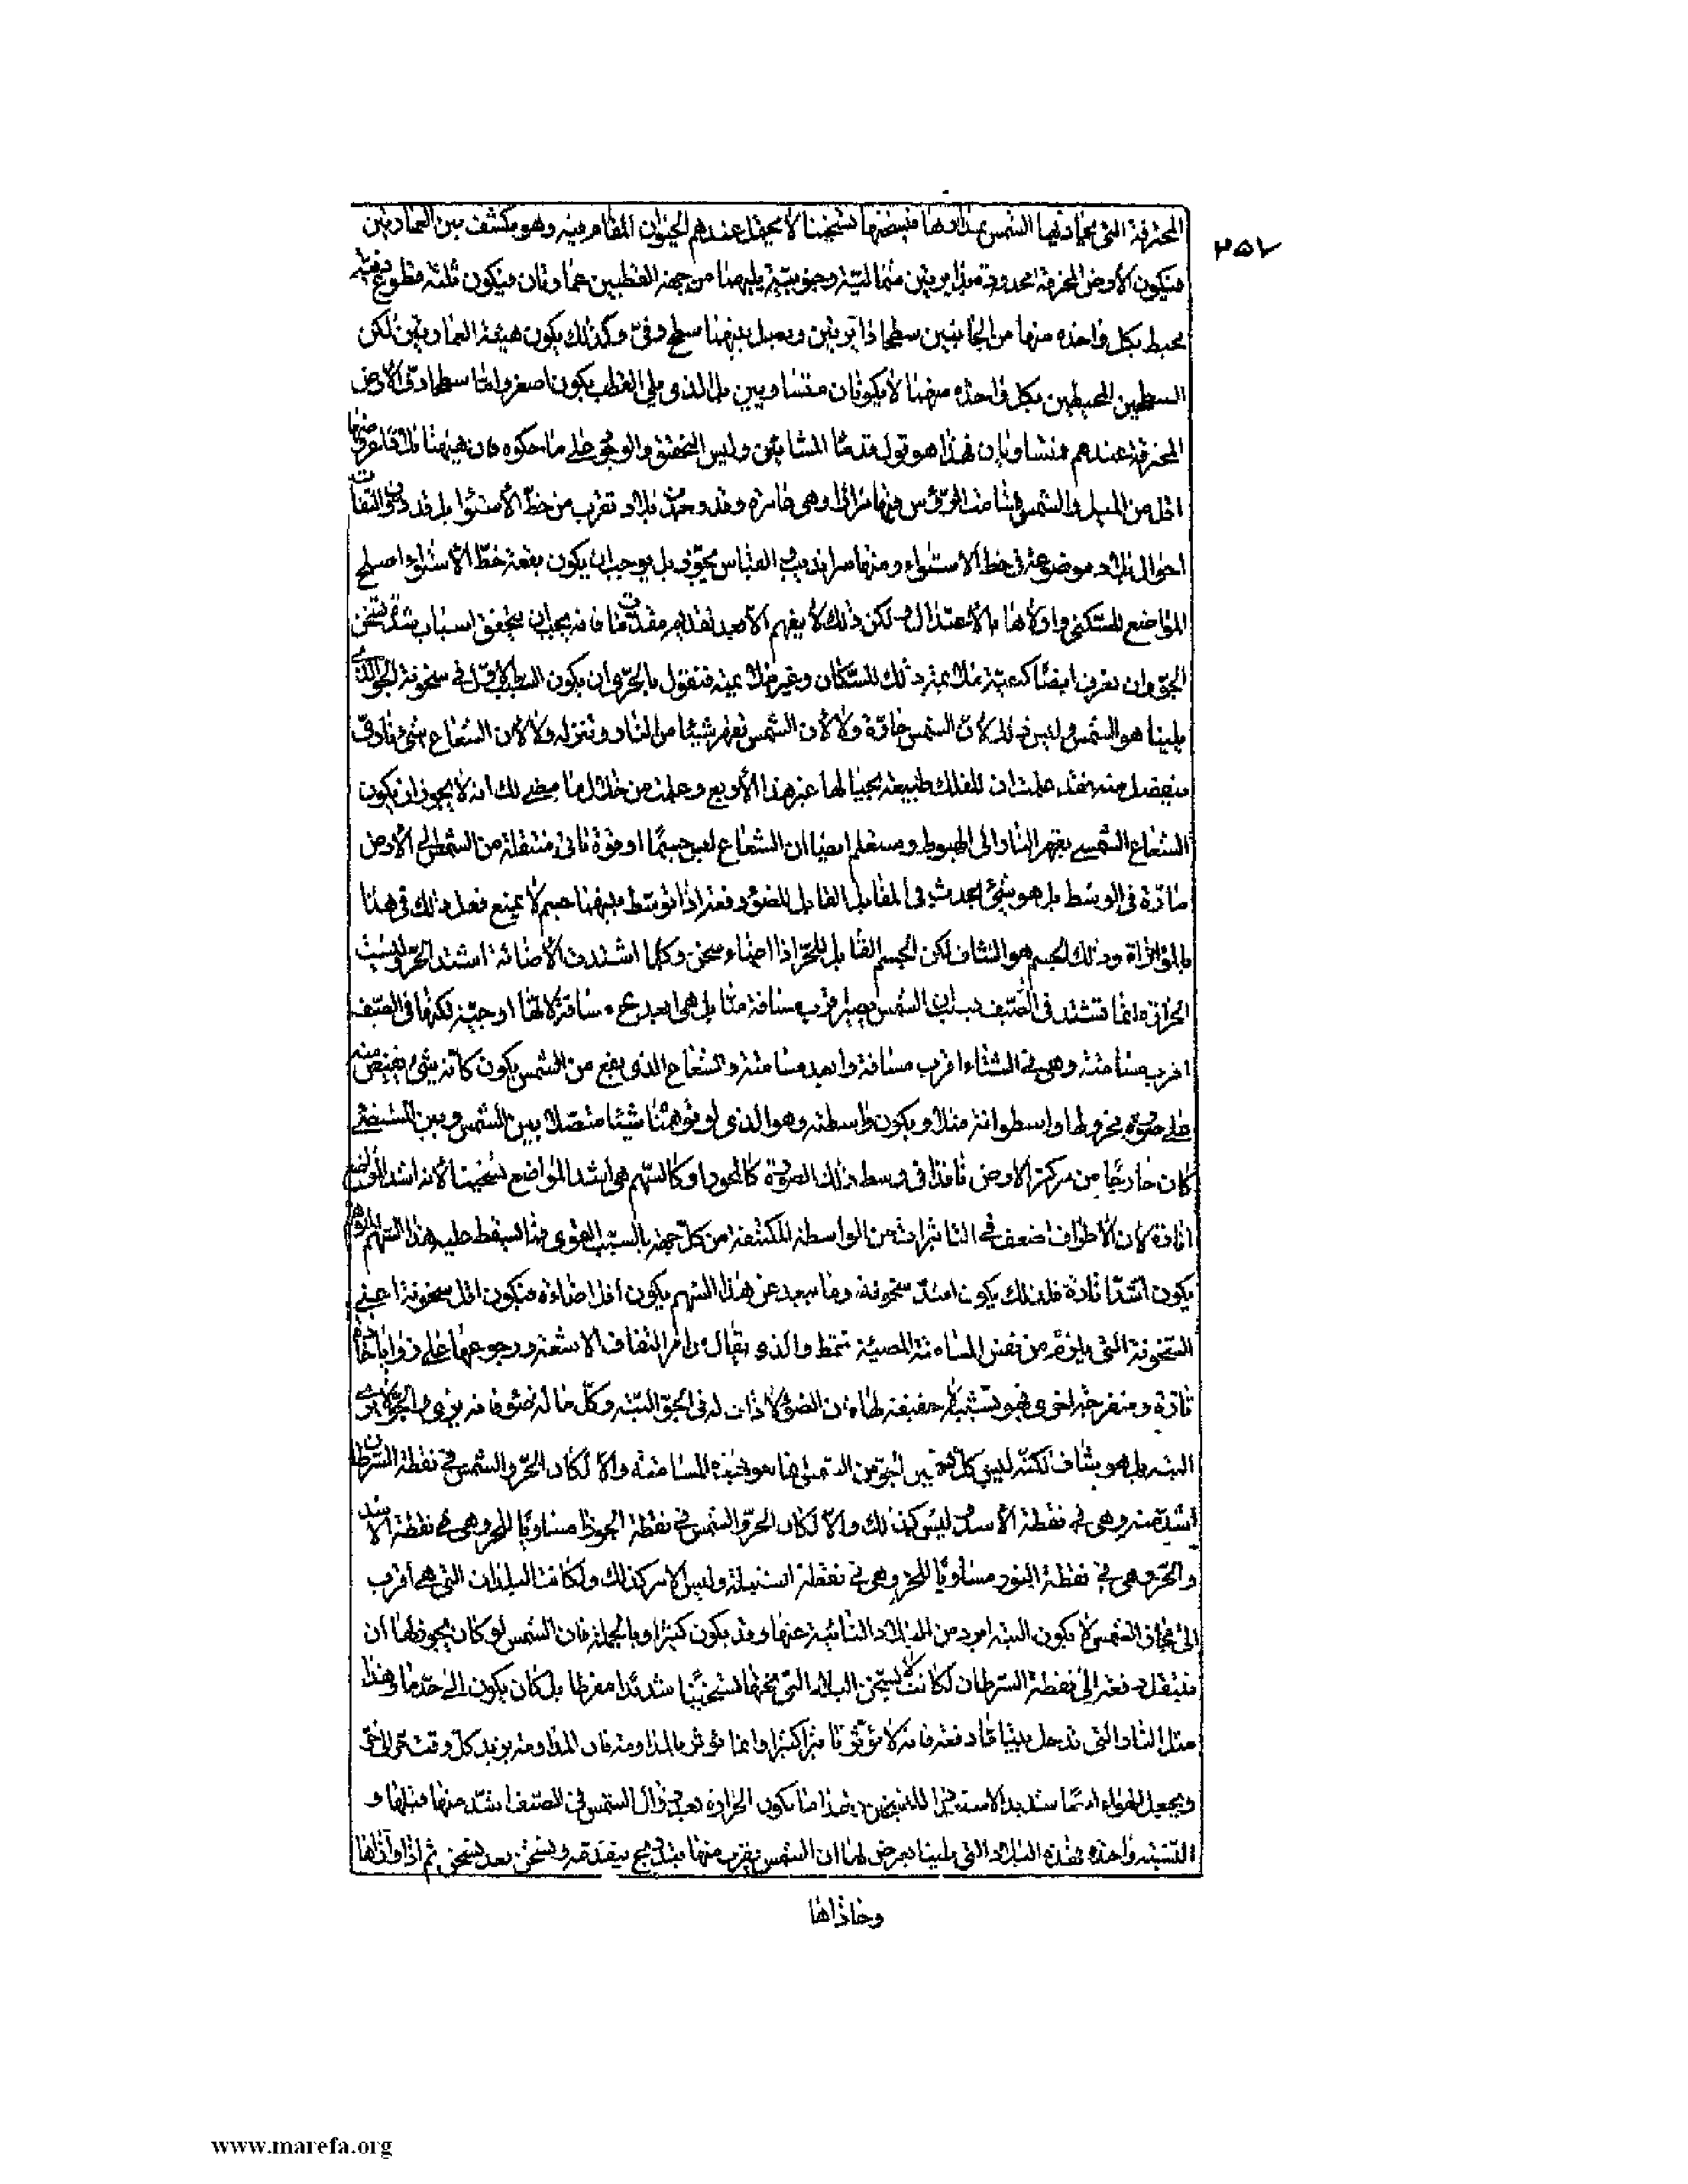 ٢٥٧
المحترقة التى يحاذيها الشمس بمدارها فيسخنها تسخينا لا يحتمل عندهم الحيوان المقام فيه وهو مكتنف بين العمارتين
فيكون الأرض المحترقة محدودة بدايرتين شمالية وجنوبية يليهما من جهة القطبين عمارتان فيكون ثلثة قطوع دفية
يحيط بكل واحدة منها من الجانبين سطحا دايرتين ويصل بينهما سطح دفى وكذلك يكون هيئة العمارتين لكن
السطحين المحيطين بكل واحدة منهما لا يكونان متساويين بل الذى يلى القطب يكون اصغر واما سطحا دفى الأرض
المحترقة عندهم متساويان فهذا هو قول قدماء المشائين وليس التحقيق والوجود على ما حكوه فان هيهنا بلادا عروضها
اقل من الميل والشمس تسامت الرؤس فيها مرارا وهى عامرة وقد وجدت بلاد تقرب من خط الأستواء بل قد
احوال بلاد موضوعة فى خط الاستواء ومنها سرانديب القياس يجوز بل يوجب ان يكون بقعة خط الأستواء اصلح
المواضع للسكنى واولاها بالاعتدال لكن ذلك لا يفهم الا بعد تقديم مقدمات فانه يجب ان يتحقق اسباب شدة تسخن
الجو وان نعرف ايضا كمية ذلك للسكان وغير ذلك فنقول بالحرى ان يكون السبب الأول فى سخونة الجو الذى
يلينا هو الشمس وليس ذلك لأن الشمس حارة ولا لأن الشمس تقهر شيئا من النار وتنزله ولا لأن الشعاع شىء نارى
ينفصل منه فقد علمت ان للفلك طبيعة بحيالها غير هذا الأربع وعلمت من خلال ما مضى لك انه لا يجوز ان يكون
الشعاع الشمسى يقهر النار الى الهبوط وستعلم ايضا ان الشعاع ليس جسما او قوة تاتى منتقلة من الشمس الى الأرض
مارة فى الوسط بل هو شىء يحدث فى المقابل القابل للضوء دفعة اذا توسط بينهما جسم لا يمنع فعل ذلك فى هذا
بالموازاة وذلك الجسم هو الشاف لكن الجسم القابل للحر اذا اضاء سخن وكلما اشتدت الأضائة اشتد الحر وليست
الحرارة انما تشتد فى الصيف بسبب ان الشمس يصير قرب مسافة منا بل هى ابعد مسافة لانها اوجية لكنها فى الصيف
اقرب مسامتة وهى فى الشتاء اقرب مسافة وابعد مسامتة والشعاع الذى يقع من الشمس يكون كأنه شىء يفيض منه
على صورة مخروط او اسطوانة مثلا ويكون واسطته وهو الذى لو توهمنا شيئا متصلا بين الشمس وبين المستضىء
كان خارجا من مركز الارض نافذا فى وسط ذلك الصورة كالمحور او كالسهم هى اشد المواضع تسخينا لأنه اشد المواضع
انارة لان الاطراف اضعف فى التاثيرات من الواسطة المكتنفة من كل جهة بالسبب القوى فما يسقط عليه هذا السهم
يكون اشد انارة فلذلك يكون اشد سخونة وما يبعد عن هذا السهم يكون اقل اضاءة فيكون اقل سخونة اعنى
السخونة التى يلزم من نفس المسامتة المضيئة فقط والذى يقال من امر التفاف الاشعة ورجوعها على زوايا حادة
تارة ومنفرجة اخرى فهو تشبيه لا حقيقة لها فان الضوء لا ذات له فى الجو البتة وكل ما له ضوء فانه يرى والجو لا يرى
البتة بل هو شاف لكنه ليس كل تأثير الجو من الشمس انما هو لهذه المسامتة والا لكان الحر والشمس فى نقطة السرطان
اشد منه وهى فى نقطة الأسد وليس كذلك والا لكان الحر والشمس فى نقطة الجوزا مساويا للحر وهى فى نقطة الاسد
والحر وهى فى نقطة الثور مساويا للحر وهى فى نقطة السنبلة وليس الامر كذلك ولكانت البلدان التى هى اقرب
الى مجاز الشمس لا يكون البتة ابرد من البلاد النائية عنها وقد يكون كثيرا وبالجملة فان الشمس لو كان يجوز لها ان
ينتقل دفعة الى نقطة السرطان لكانت لا يسخن البلاد التى تحتها تسخينا شديدا مفرطا بل كان يكون الى حد ما وهذا
مثل النار التى تدخل بيتا باردا دفعة فانه لا يؤثر تاثيرا كثيرا وانما يؤثر بالمداومة فان المداومة يزيد كل وقت حر الى حر
ويجعل الهواء دائما شديد الاستعداد للتسخن ولهذا ما يكون الحرارة بعد زوال الشمس فى الصيف اشد منها قبلها و
النسبة واحدة فهذه البلاد التى يلينا يعرض لها ان الشمس يقرب منها بتدريج يتقدمه ويسخن بعد تسخن ثم اذا وافاها
وحاذاها
www.marefa.org